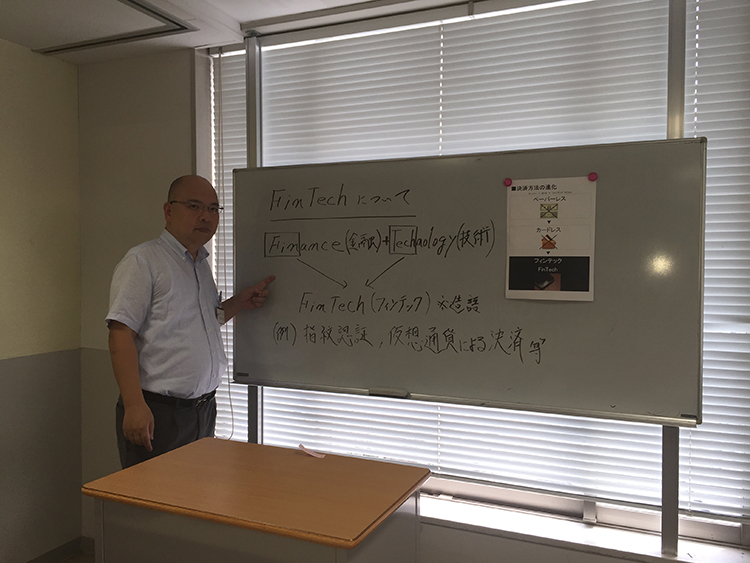 FinTechについて
Finance(金融)+Technology(技術)
FinTech(フィンテック)※造語
(例)指紋認証,仮想通貨による決済等
■決済方法の進化
ペーパーレス
カードレス
フィンテック
FinTech